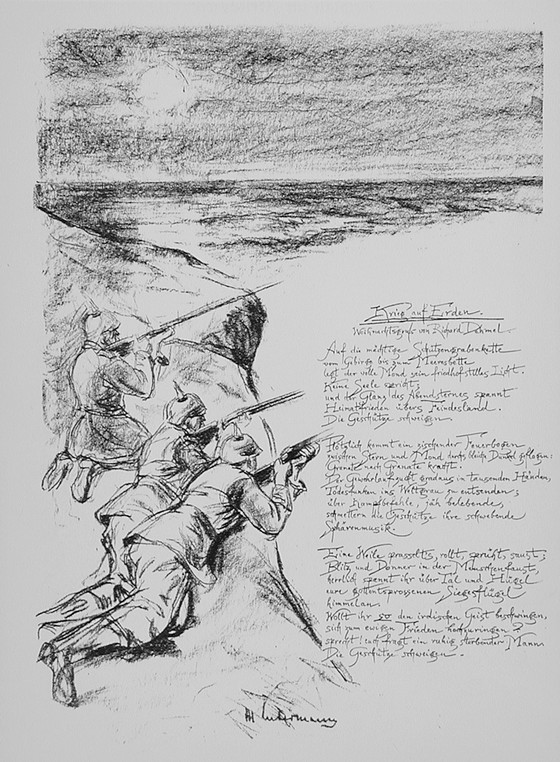 Krieg auf Erden.
Weihnachtsgruß von Richard Dehmel.
Auf die mächtige Schützengrabenkette
vom Gebirg bis zum Meeresbette
legt der volle Mond sein friedhofstilles Licht.
Keine Seele spricht,
und der Glanz des Abendsternes spannt
Heimatfrieden übers Feindesland.
Die Geschütze schweigen.
Plötzlich kommt ein zischender Feuerbogen
zwischen Stern und Mond durchs bleiche Dunkel geflogen:
Granate nach Granate kracht.
Der Gewehrlauf zuckt gradaus in tausenden Händen,
Todesfunken ins Weltgrau zu entsenden;
über Kampfbefehle, jäh belebende,
schmettern die Geschütze ihre schwebende
Sphärenmusik.
Eine Weile prasselts, rollt, sprüht, saust,
Blitz und Donner in der Menschenfaust,
herrlich spannt ihr über Tal und Hügel
eure gottentsprossenen Siegesflügel
himmelan.
Wollt ihr so den irdischen Geist beschwingen,
sich zum ewigen Frieden
sprecht! euch fragt ein ruhig sterbender Mann.
Die Geschütze schweigen.
M Liebermann